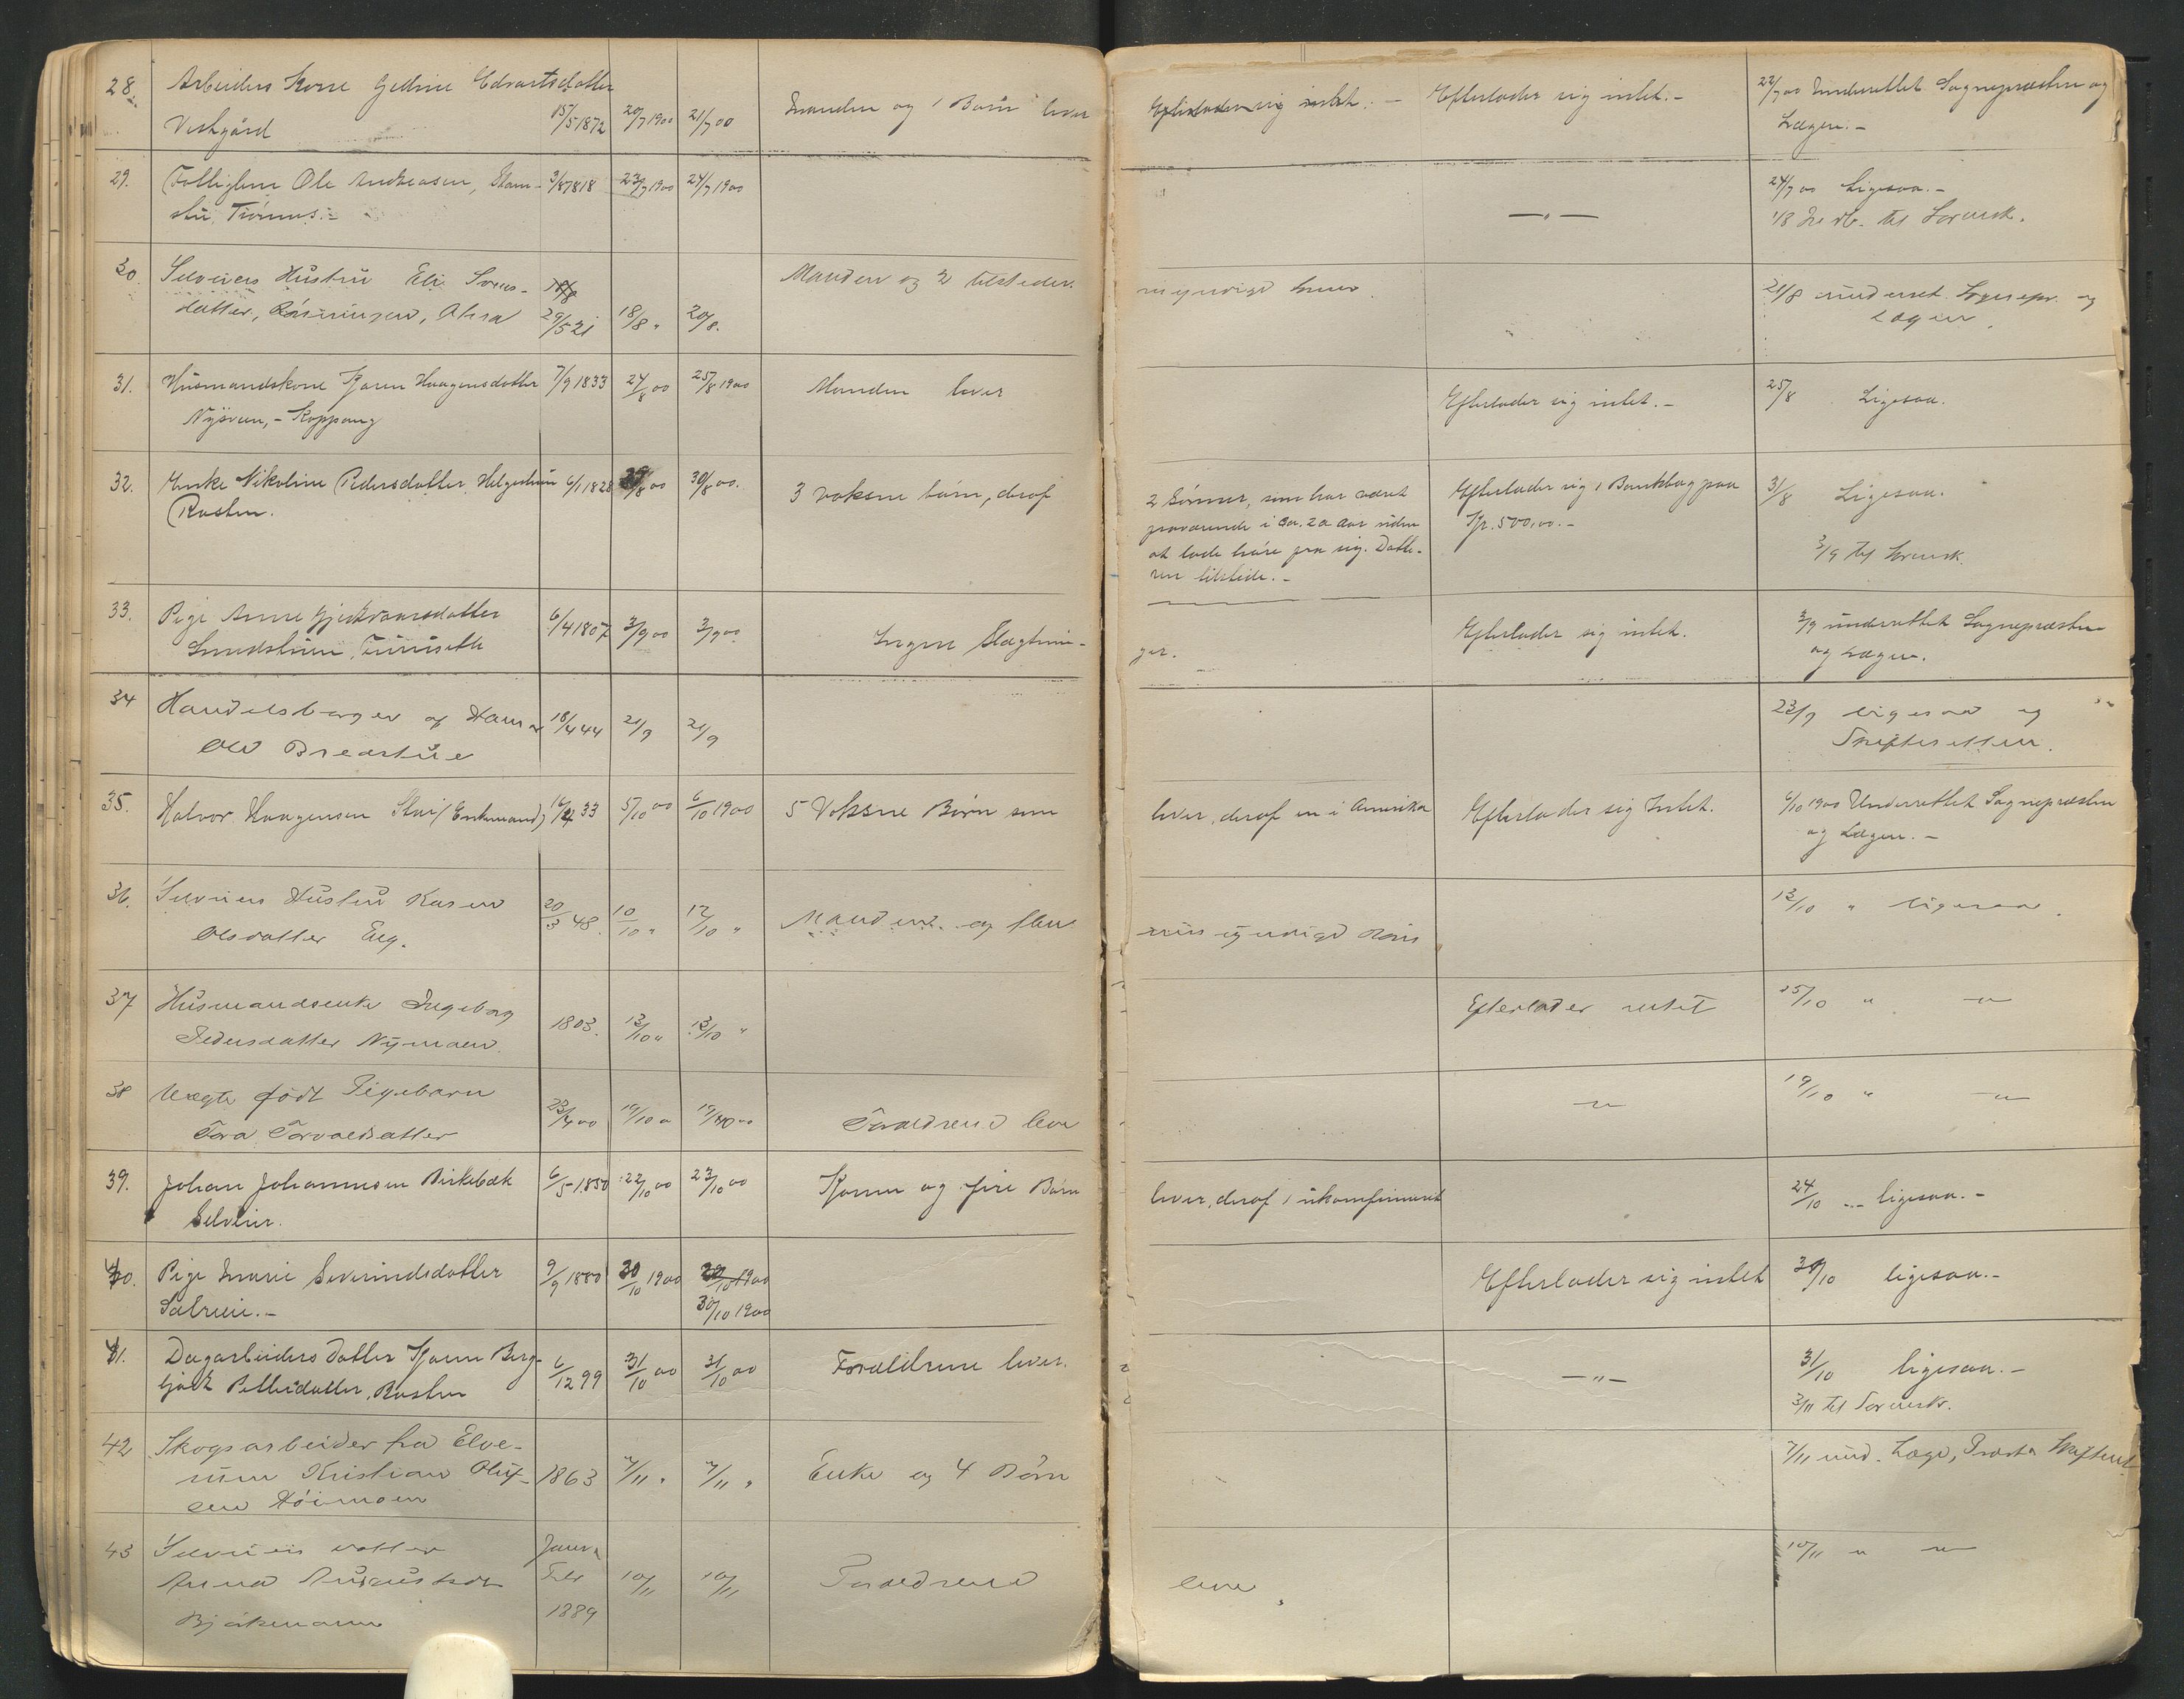 28. Arbeiders Kone Gedine Edvartsdatter
Vestgård 15/5 1872 20/7 1900 21/7 00 Manden og 1 Barn lever Efterlader sig intet. - Efterlader sig intet. - 22/7 00 Underrettet Sognepræsten og
Lægen. -
29. Fattiglem Ole Andreasen, Stam- 3/8 1818 23/7 1900 24/7 1900 24/7 00 Ligesaa. -
— " — 1/8 til Sorensk.
30 Selveiers Hustru Eli Svens- Manden og 2 tilsteder.
datter, Åsa 29/5 21 18/8 " 20/8. 21/8 underret. Sognepr. og
Lægen.
31. Husmandskone Karen Haagensdatter 7/9 1833 24/8 00 25/8 1900 Manden lever Efterlader sig intet. - 25/8 Ligesaa.
Nysveen, - Koppang
32. Enke Nikoline Pedersdatter Helgestuen 6/1 1828 29/8 00 30/8 00. 3 voksne børn, deraf
Rasten.
2 Sønner, som har været Efterlader sig 1 Bankbog paa 31/8 Ligesaa.
fraværende i ca. 20 Aar uden Kr. 500,00. -
at lade høre fra sig. Datte- 3/9 til Sorensk.
ren tilstede. -
33. Pige Anne Gjertvansdatter
6/4 1807 3/9 00 3/9 00 Ingen Slægtnin-
ger. Efterlader sig intet. 3/9 underrettet Sognepræsten
og Lægen.
34 Handelsborger af Hamar 18/4 44 21/9 21/9 23/9 ligesaa og
Ole Bredstue Skifteretten.
35. Halvor Haagensen Stai (Enkemand) 16/4 33 5/10 00 6/10 1900 5 Voksne Børn som lever, deraf en i Amerika Efterlader sig Intet. 6/10 1900 Underrettet Sognepræsten
og Lægen. -
36. Selveiers Hustru Karen 20/3 48. 10/10 " 12/10 " Manden og flere umyndige Børn 12/10 " ligesaa.
Olsdatter Eng.
37 Husmandsenke Ingeborg
Pedersdatter Nymoen. 1803. 12/10 " 13/10 " Efterlader intet 15/10 " — " —
38 Uægte født Pigebarn
Tora Torvaldsdatter 19/10 " Forældrene leve — " — 19/10 " — " —
39. Johan Johannesen Birkebæk 6/5 1850 22/10 00 23/10 00 Konen og fire Børn lever, deraf 1 ukonfirmeret 24/10 ligesaa. -
Selveier.
40. Pige Marie Severindsdatter 9/9 1880 30/10 1900 30/10 1900 Efterlader sig intet 30/10 ligesaa. -
41. Dagarbeiders Datter Karen Berg- 6/12 99 31/10 00 31/10 00 Forældrene lever. — " — 31/10 ligesaa. -
ljot Petterdatter, Rasten 3/11 til Sorensk.
42 Skogsarbeider fra Elve-
rum Kristian Oluf- 1863 7/11 " 7/11 " Enke og 4 Børn 7/11 und. Læge, Præst
sen Høimoen
43 Selveiers datter Janr.
Anna Augustsdtr Febr 10/11 10/11 Forældrene leve. 10/11 " — " —
1889